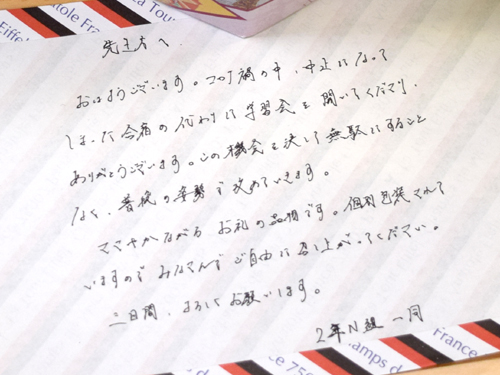 Eiffel
tole France
ta Tou
先生方へ
おはようございます。コロナ禍の中、中止になって
しまった合宿の代わりに学習会を開いてくださり、
ありがとうございます。この機会を決して無駄にすること
なく、最後の姿勢で攻めていきます。
ささやかながらお礼の品物です。個別包装されて
いますのでみなさんでご自由に召し上がってください。
三日間、よろしくお願いします。
2年N組一同
France
ce 750
tamps d